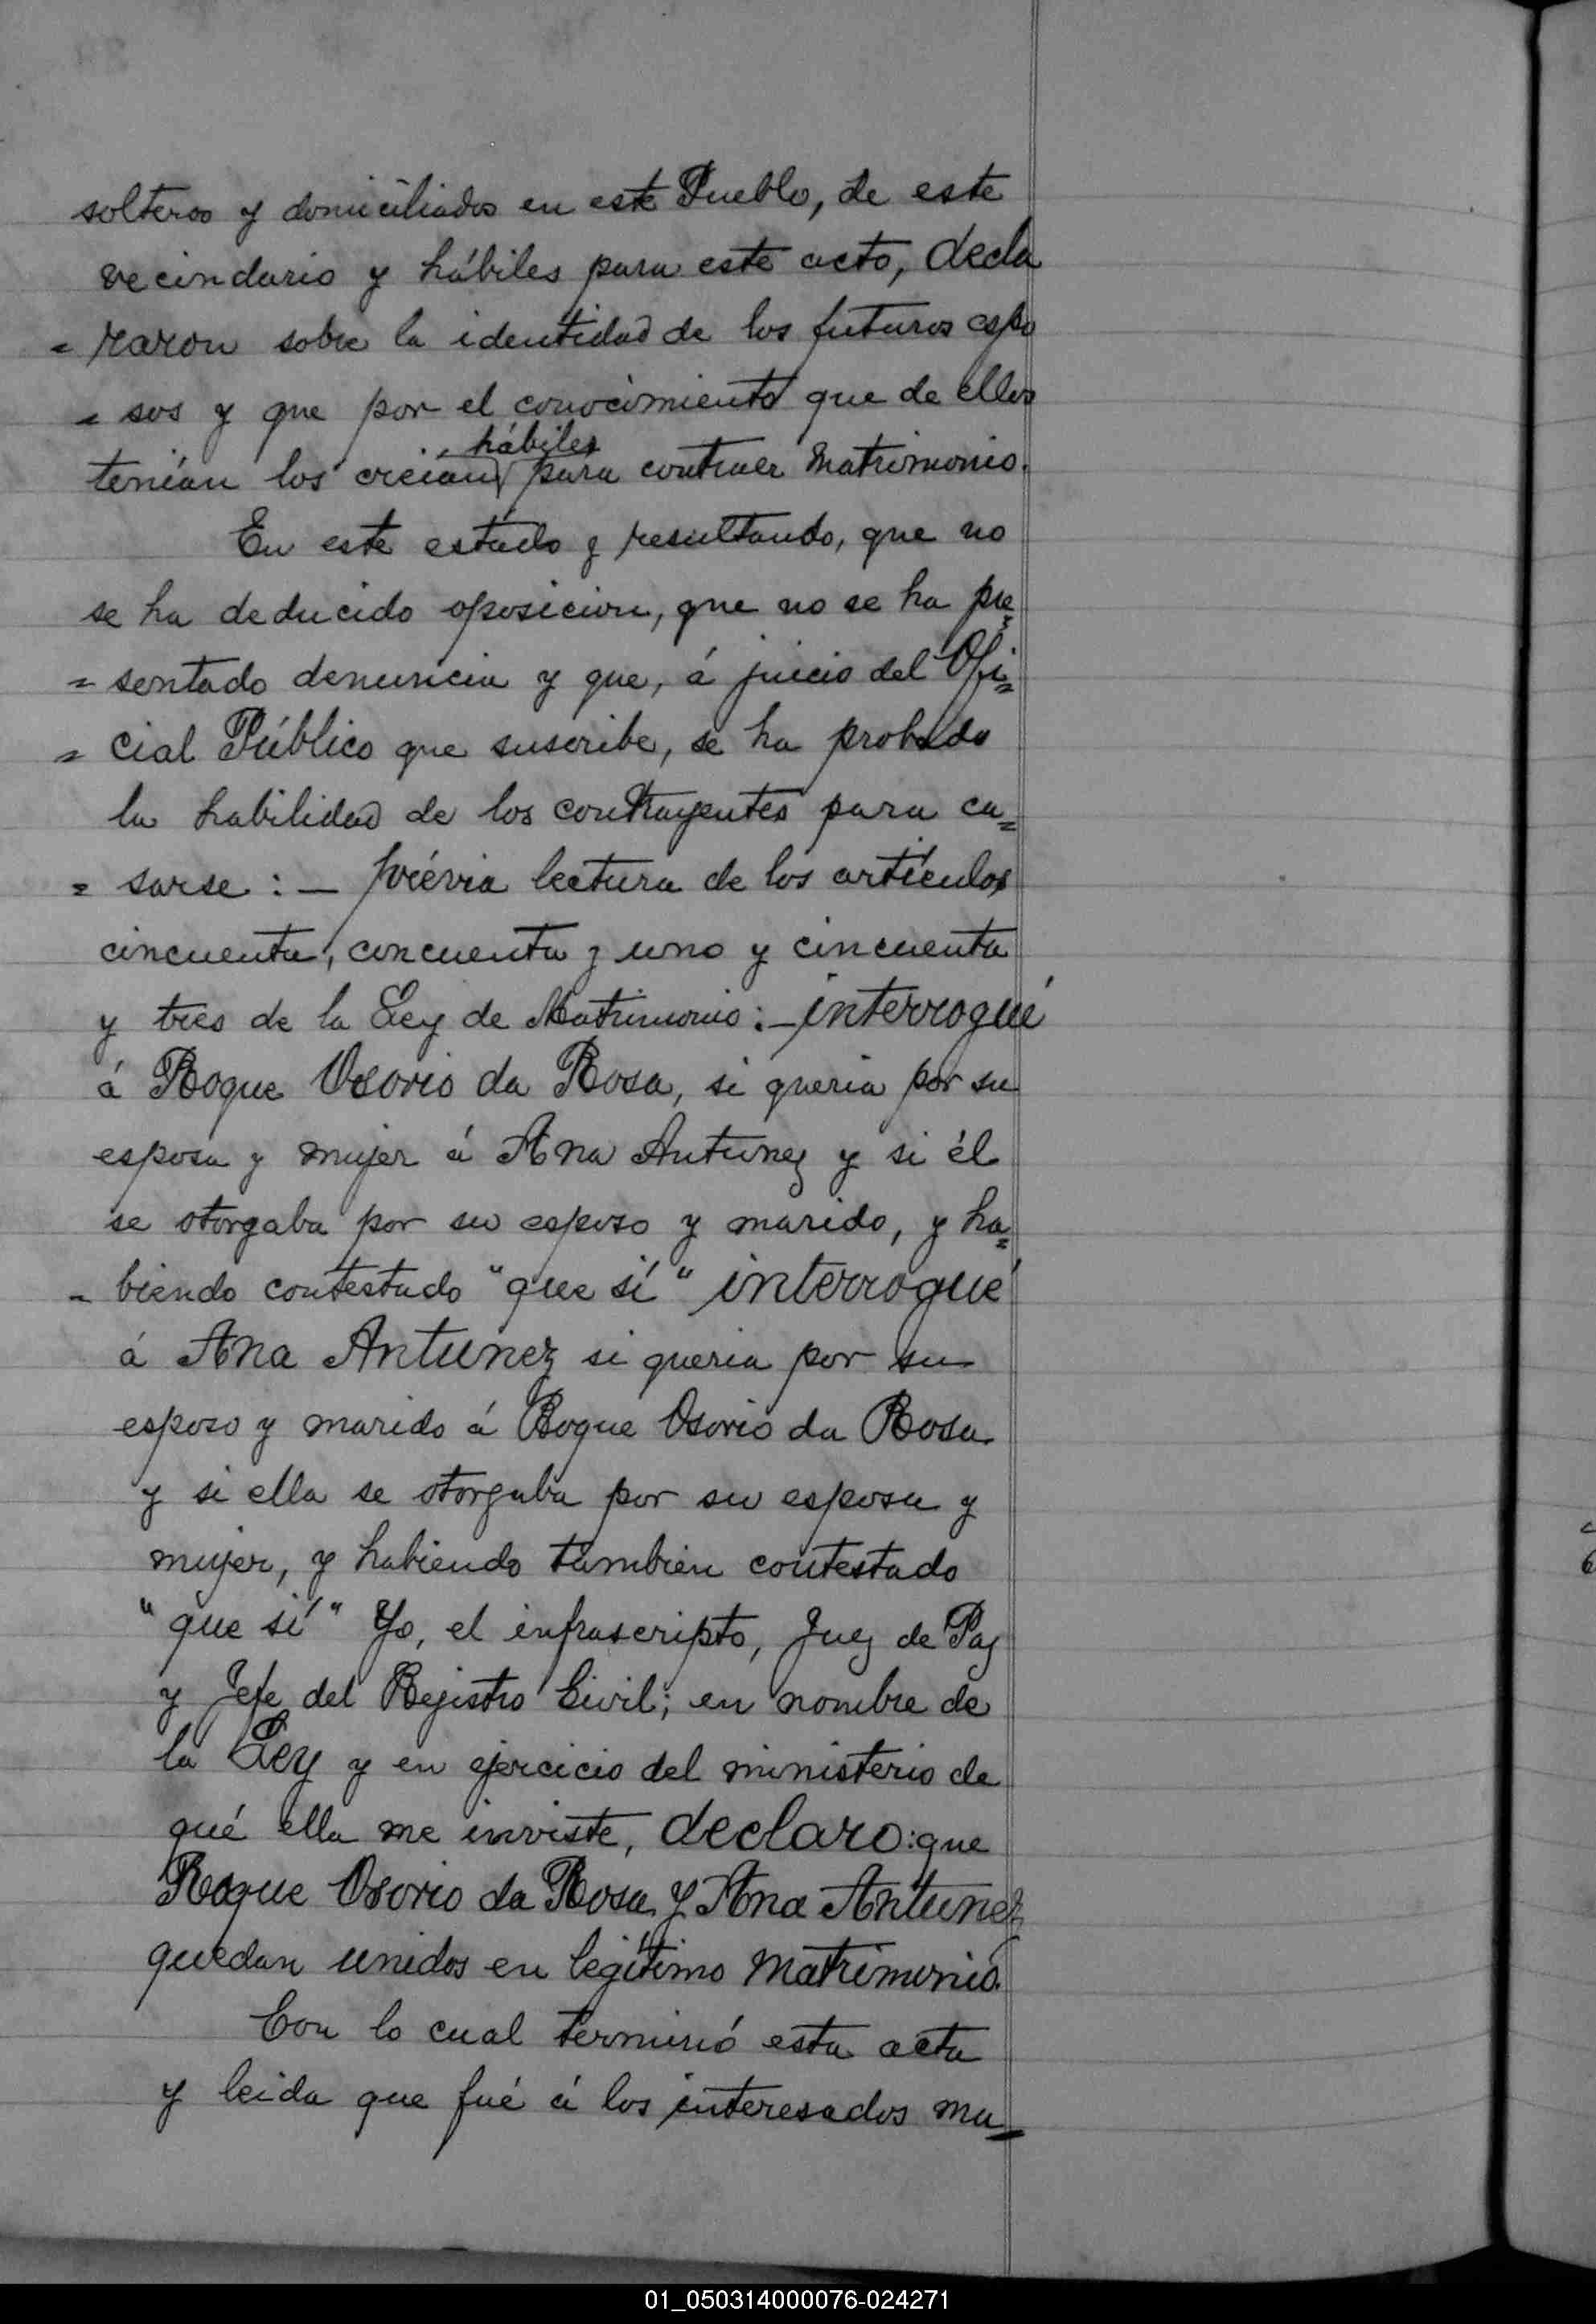 solteros y domiciliados en este Pueblo, de este
vecindario y hábiles para este acto, decla
= raron sobre la identidad de los futuros espo
= sos y que por el conocimiento que de ellos
hábiles
tenían los creían para contraer matrimonio.
En este estado y resultando, que no
se ha deducido oposicion, que no se ha pre=
= sentado denuncia y que, á juicio del Ofi=
= cial Público que suscribe, se ha probado
la habilidad de los contrayentes para ca=
= sarse : — prévia lectura de los artículos
cincuenta, cincuenta y uno y cincuenta
y tres de la Ley de Matrimonio : — interrogué
á Roque Osorio da Rosa, si queria por su
esposa y mujer á Ana Antunez y si él
se otorgaba por su esposo y marido, y ha=
= biendo contestado "que sí" interrogué
á Ana Antunez si queria por su
esposo y marido á Roque Osorio da Rosa
y si ella se otorgaba por su esposa y
mujer, y habiendo tambien contestado
"que sí" Yo, el infrascripto, Juez de Paz
y Jefe del Rejistro Civil; en nombre de
la Ley y en ejercicio del ministerio de
qué ella me inviste, declaro: que
Roque Osorio da Rosa y Ana Antunez
quedan unidos en legítimo matrimonio.
Con lo cual terminó esta acta
y leida que fué á los interesados ma=
01_050314000076-024271